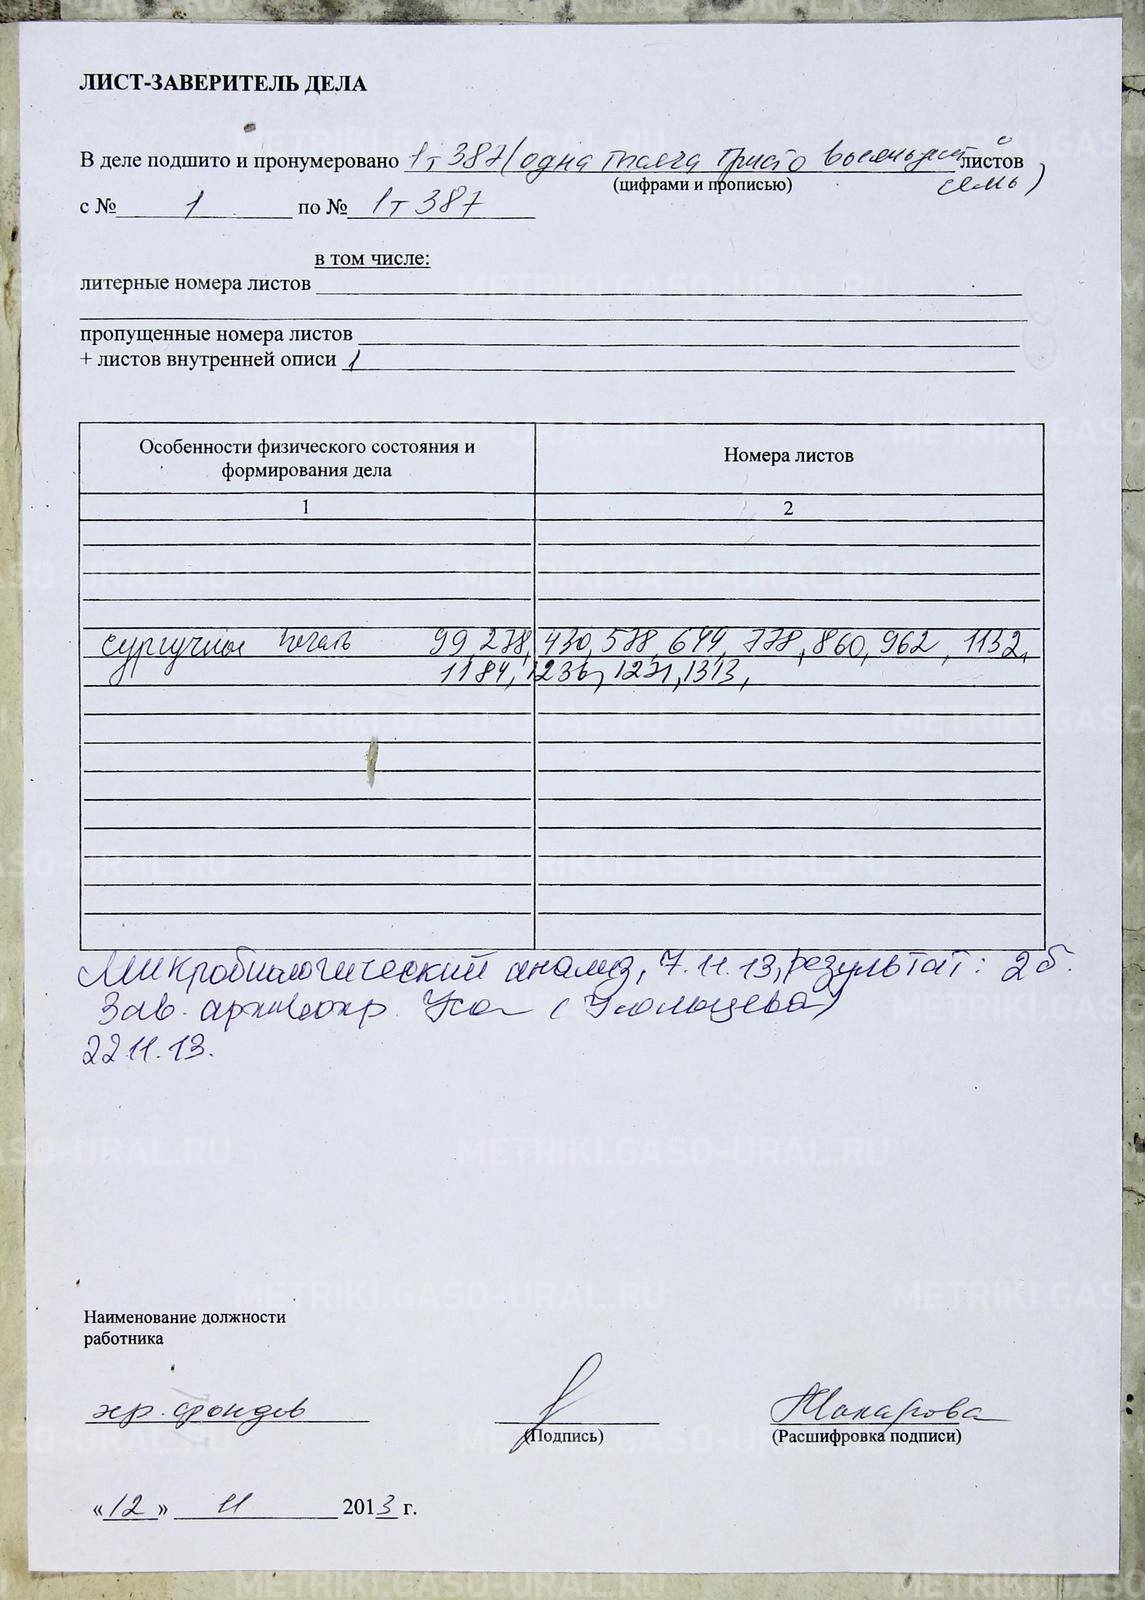 ЛИСТ-ЗАВЕРИТЕЛЬ ДЕЛА
В деле подшито и пронумеровано 1т387 (одна тысяча триста восемьдесят листов
(цифрами и прописью) семь)
с № 1 по № 1т387
в том числе:
литерные номера листов
пропущенные номера листов
+ листов внутренней описи 1
Особенности физического состояния и формирования дела
Номера листов
1 2
сургучная печать 99, 278, 430, 578, 644, 778, 860, 962, 1132,
1184, 1236, 1271, 1313,
Микробиологический анализ, 7.11.13, результат: 2б.
Зав. архивохр. (Усольцева)
22.11.13.
Наименование должности
работника
хр. фондов
(Подпись)
Макарова
(Расшифровка подписи)
«12» 11 2013 г.
METRIKI.GASO-URAL.RU